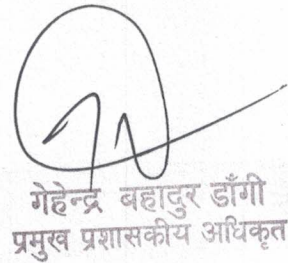 गेहेन्द्र बहादुर डाँगी
प्रमुख प्रशासकीय अधिकृत